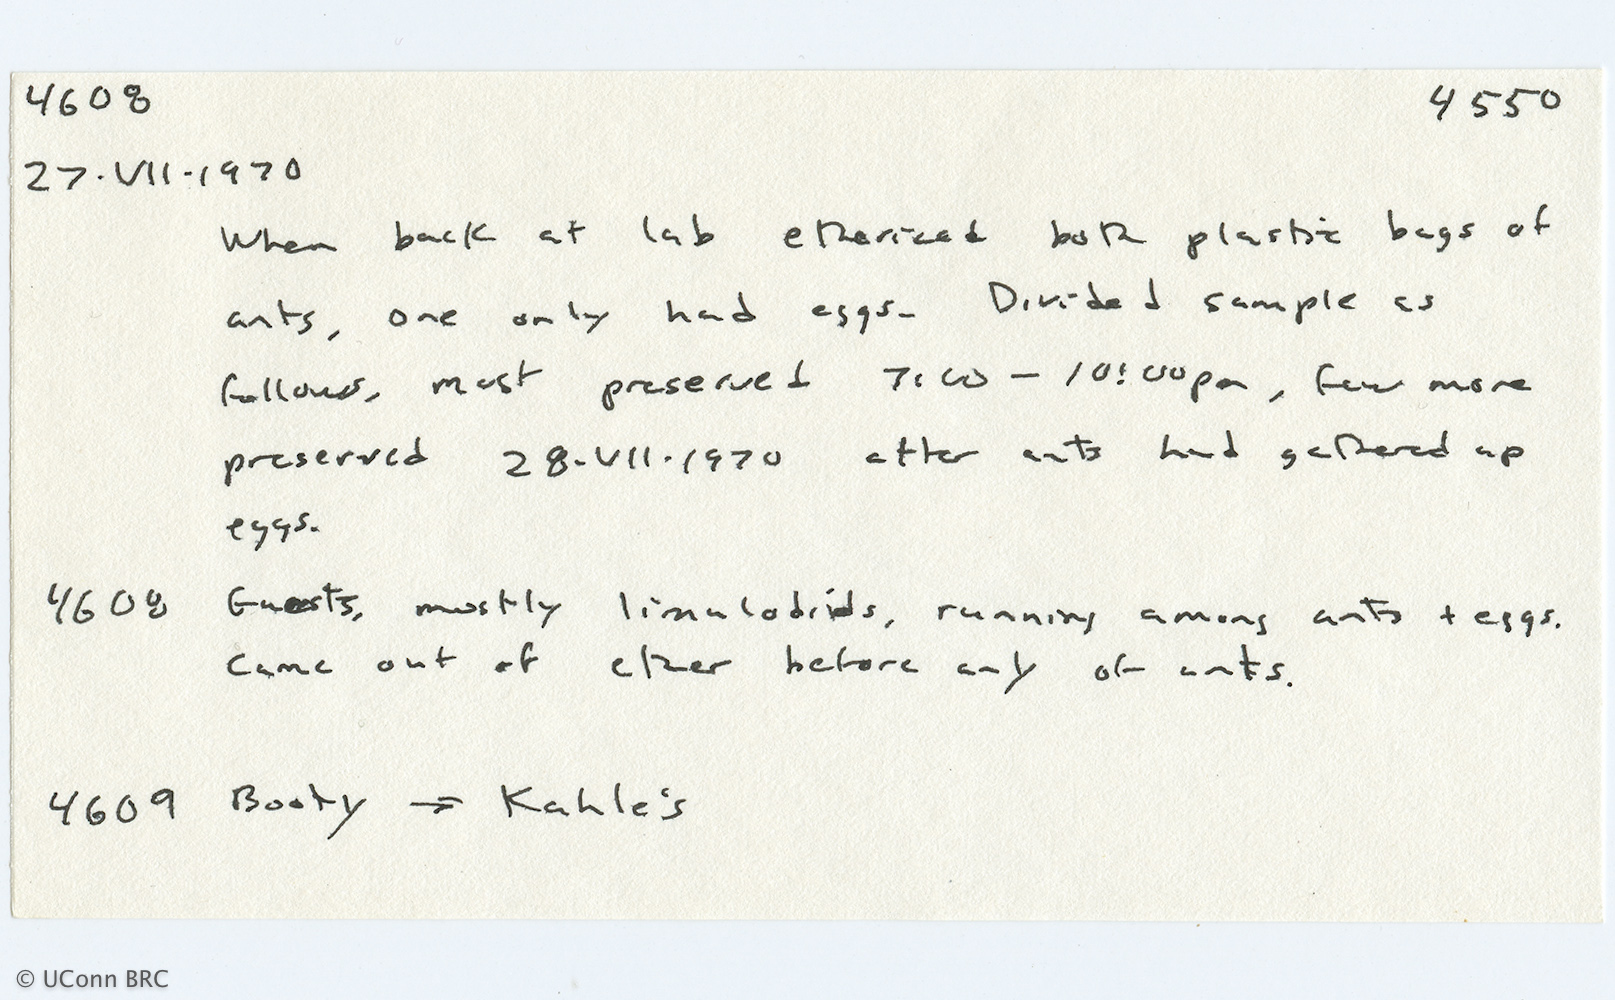 4608 4550
27.VII.1970
When back at lab etherized both plastic bags of
ants, one only had eggs. Divided sample as
follows, most preserved 7:00 – 10:00pm, few more
preserved 28.VII.1970 after ants had gathered up
eggs.
4608 Guests, mostly limulodids, running among ants + eggs.
Came out of ether before any of ants.
4609 Booty → Kahle's
© UConn BRC